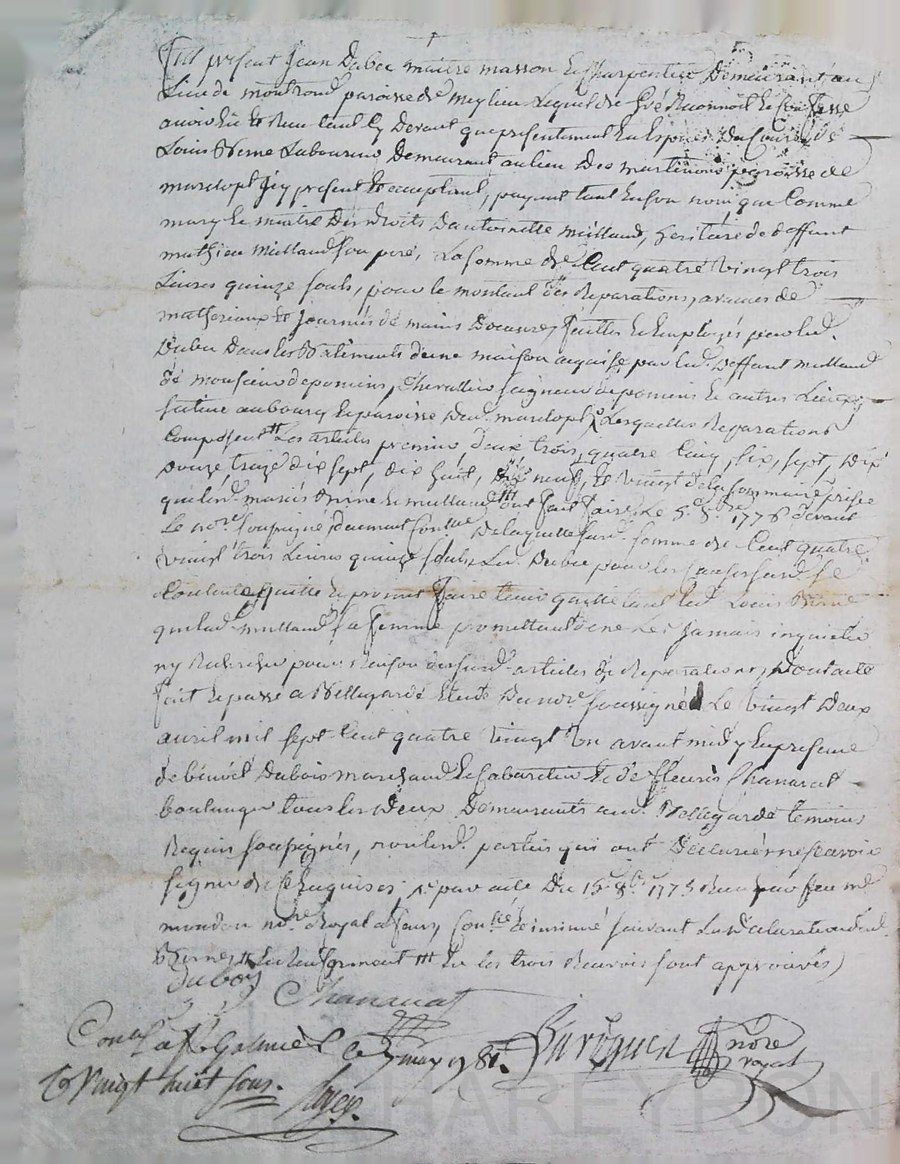 Fut présent Jean Dubec maitre masson et charpentier demeurant au
Lieu de montrond paroisse de meylieu Lequel de gré Reconnoit et confesse
avoir eu et Reçu tant cy devant que présentement en Espèces du Cours de
Louis Verne Laboureur demeurant au lieu des martinons paroisse de
marclopt icy present et acceptant, payant tant en son nom que Comme
mary et maitre des droits d'antoinette meilland, heritiere de deffunt
mathieu meilland son pere, La somme de Cent quatre vingt trois
Livres quinze souls, pour le montant des Reparations, avances de
matheriaux et journées de mains d'oeuvres, faittes et Employés par led.
Dubec dans les Batiments d'une maison acquise par led. deffunt meilland
de monsieur deponcins, Chevallier seigneur deponcins et autres Lieux,
située au bourg et paroisse dud. marclopt, Lesquelles Reparations
Composent les articles premier, deux, trois, quatre, cinq, six, sept, dix
douze traize dix sept, dix huit, dix neuf, et vingt de la sommaire prisée
que led. mariés Verne et meilland ont fait faire, Le 5e 8bre 1776 devant
Le nore soussigné dument Contrôlé De laquelle susd. somme de Cent quatre
vingt trois Livres quinze souls, Led. Dubec pour les causes susd. se
Contente, quitte et promet faire tenir quitte tant led. Louis Verne
que lad. meilland sa femme promettant de ne Les jamais inquieter
ny Rechercher pour raison desusd. articles de Reparations, Dont acte
fait et passé a Bellegarde Etude du nore soussigné Le vingt Deux
avril mil sept Cent quatre vingt un avant midy En presence
de benoit Dubois marchand et Cabaretier et de fleury Chanavat
boulanger tous les deux Demeurants aud. Bellegarde temoins
Requis soussignés, non led. parties qui ont Déclaré ne scavoir
signer de ce Enquises, par acte Du 15e 8bre 1775 Reçu par feu me
mondon nore Royal a feurs, Contlé et insinué suivant La déclaration dud.
Verne, et les trois Renvois sont approuvés)
Dubois Chanavat
Contlé a st Galmier Le 7 may 1781.
vingt huit sous.
nore
royal
CHAREYRON